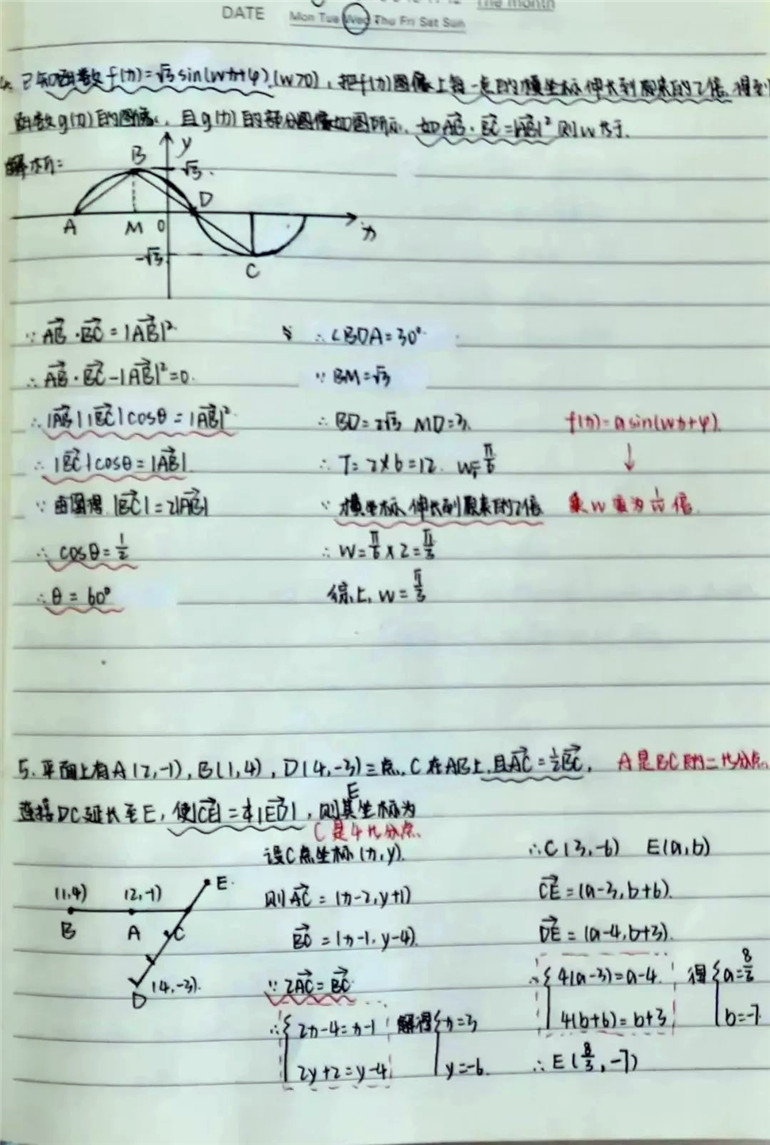 DATE
Mon Tue Wed Thu Fri Sat Sun
The month
4. 已知函数f(x)=√3 sin(wx+φ).(w>0),把f(x)图像上每一点的横坐标伸长到原来的2倍.得到
函数g(x)的图像,且g(x)的部分图像如图所示.如AB→·BC→=|AB→|² 则w为于.
解析:
B y √3
A M 0 D x
-√3 C
∵ AB→·BC→=|AB→|²
∴ AB→·BC→-|AB→|²=0.
∴ |AB→||BC→|cosθ=|AB→|²
∴ |BC→|cosθ=|AB→|.
∵ 由图得 |BC→|=2|AB→|
∴ cosθ=1/2
∴ θ=60°
∴ ∠BDA=30°
∵ BM=√3
∴ BD=2√3 MD=3.
∴ T=2×6=12. w=π/6
∵ 横坐标伸长到原来的2倍
∴ w=π/6×2=π/3
综上,w=π/3
f(x)=a sin(wx+φ).
↓
乘w 变为1/w倍.
5. 平面上有A(2,-1),B(1,4),D(4,-3)三点.C在AB上,且AC→=1/2BC→, A是BC的二比分点.
连接DC延长至E,使|CE→|=1/4|ED→|,则其坐标为
E
C是4比分点.
(1,4) (2,-1) E.
B A C
D (4,-3).
设C点坐标(x,y).
则AC→=(x-2,y+1)
BC→=(x-1,y-4).
∵ 2AC→=BC→
∴ {2x-4=x-1 解得{x=3
2y+2=y-4 y=-6.
∴ C(3,-6) E(a,b)
CE→=(a-3,b+6).
DE→=(a-4,b+3).
∴ {4(a-3)=a-4. 得{a=8/3
4(b+6)=b+3 b=-7.
∴ E(8/3,-7)